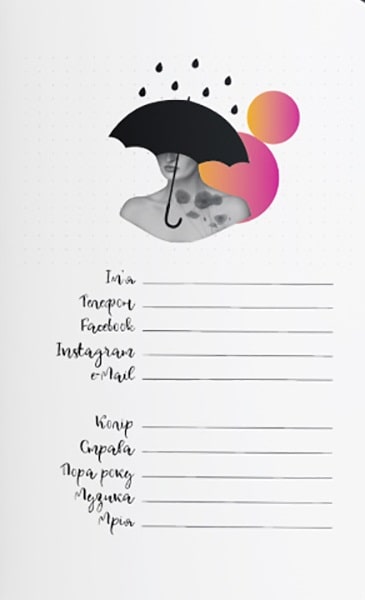 Ім'я
Телефон
Facebook
Instagram
e-Mail
Колір
Страва
Пора року
Музика
Мрія